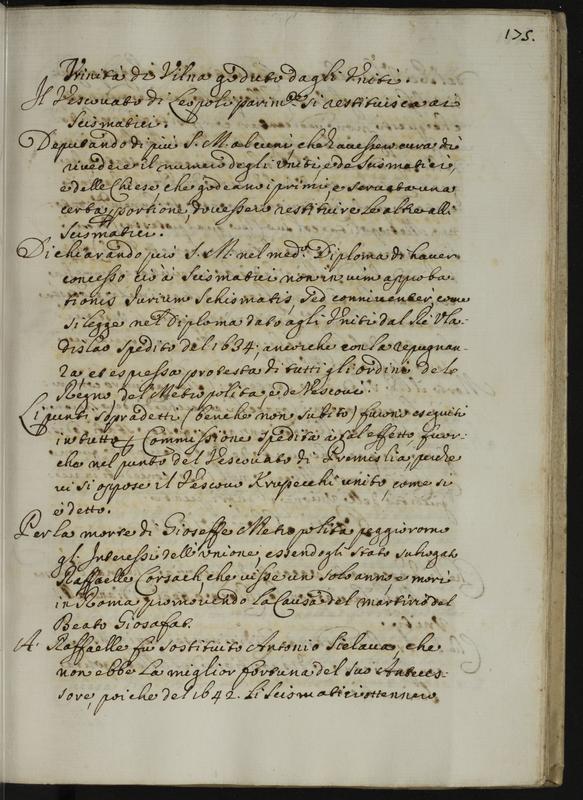 175.
Trinità di Vilna goduto dagli Uniti.
Il Vescovato di Leopoli parim.te si restituisca ai
Scismatici.
Deputando di più S. M. alcuni che havessero cura di
rivedere il numero degli Uniti e de Scismatici,
e delle Chiese che godeano i primi, e servata una
certa portione, dovessero restituire le altre alli
Scismatici.
Dichiarando più S. M. nel med.o Diploma di haver
concesso ciò a Scismatici non in vim approba
tionis Jurium Schismatis, sed conniventer, come
si legge nel Diploma dato agli Uniti dal Re Vla-
dislao spedito del 1634, ancorche con la repugnan-
za, et espressa protesta di tutti gli ordini del
Regno del Metropolita e de Vescovi.
Li punti sopradetti (benche non subito) furono eseguiti
in tutto p Commissione spedita à tal effetto, fuor-
che nel punto del Vescovato di Premislia, perche
vi si oppose il Vescovo Krupecchi unito, come si
è detto.
Per la morte di Gioseffe Metropolita peggiororno
gli Interessi dell'Unione, essendogli stato subrogato
Raffaelle Corsach che visse un solo anno, e morì
in Roma promovendo la Causa del martirio del
Beato Giosafat.
A Raffaelle fù sostituito Antonio Sielava, che
non ebbe la miglior fortuna del suo Anteces-
sore, poiche del 1642. li Scismatici ottennero